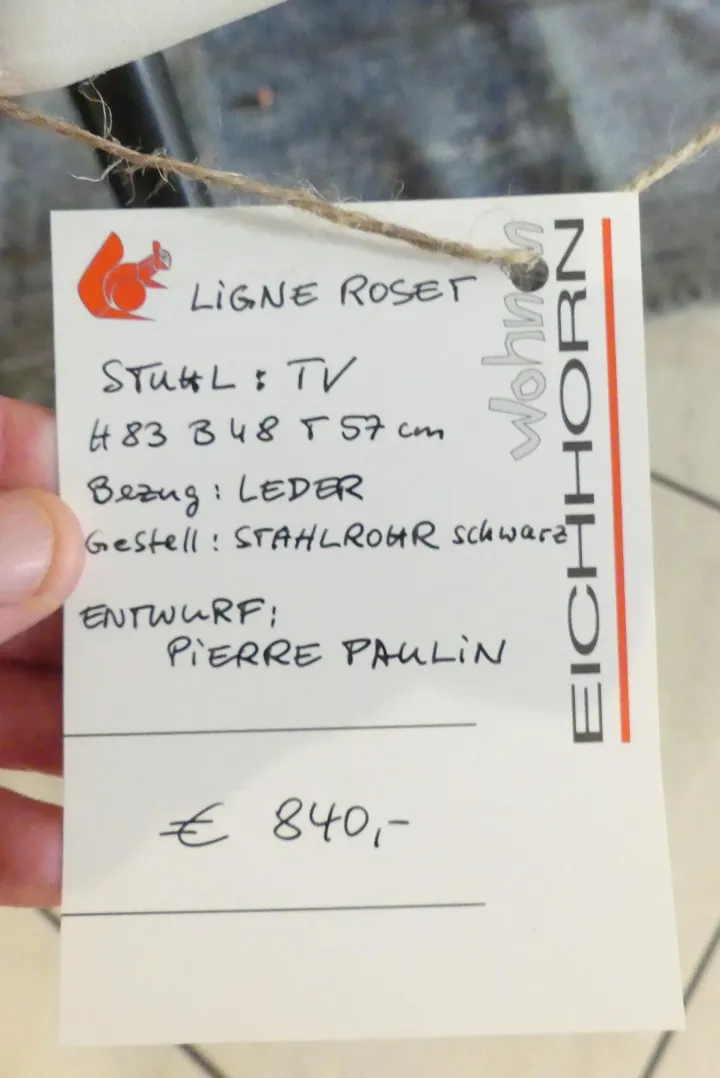 LIGNE ROSET
STUHL : TV
H 83 B 48 T 57 cm
Bezug : LEDER
Gestell : STAHLROHR schwarz
ENTWURF:
PIERRE PAULIN
€ 840,-
Wohnen
EICHHORN